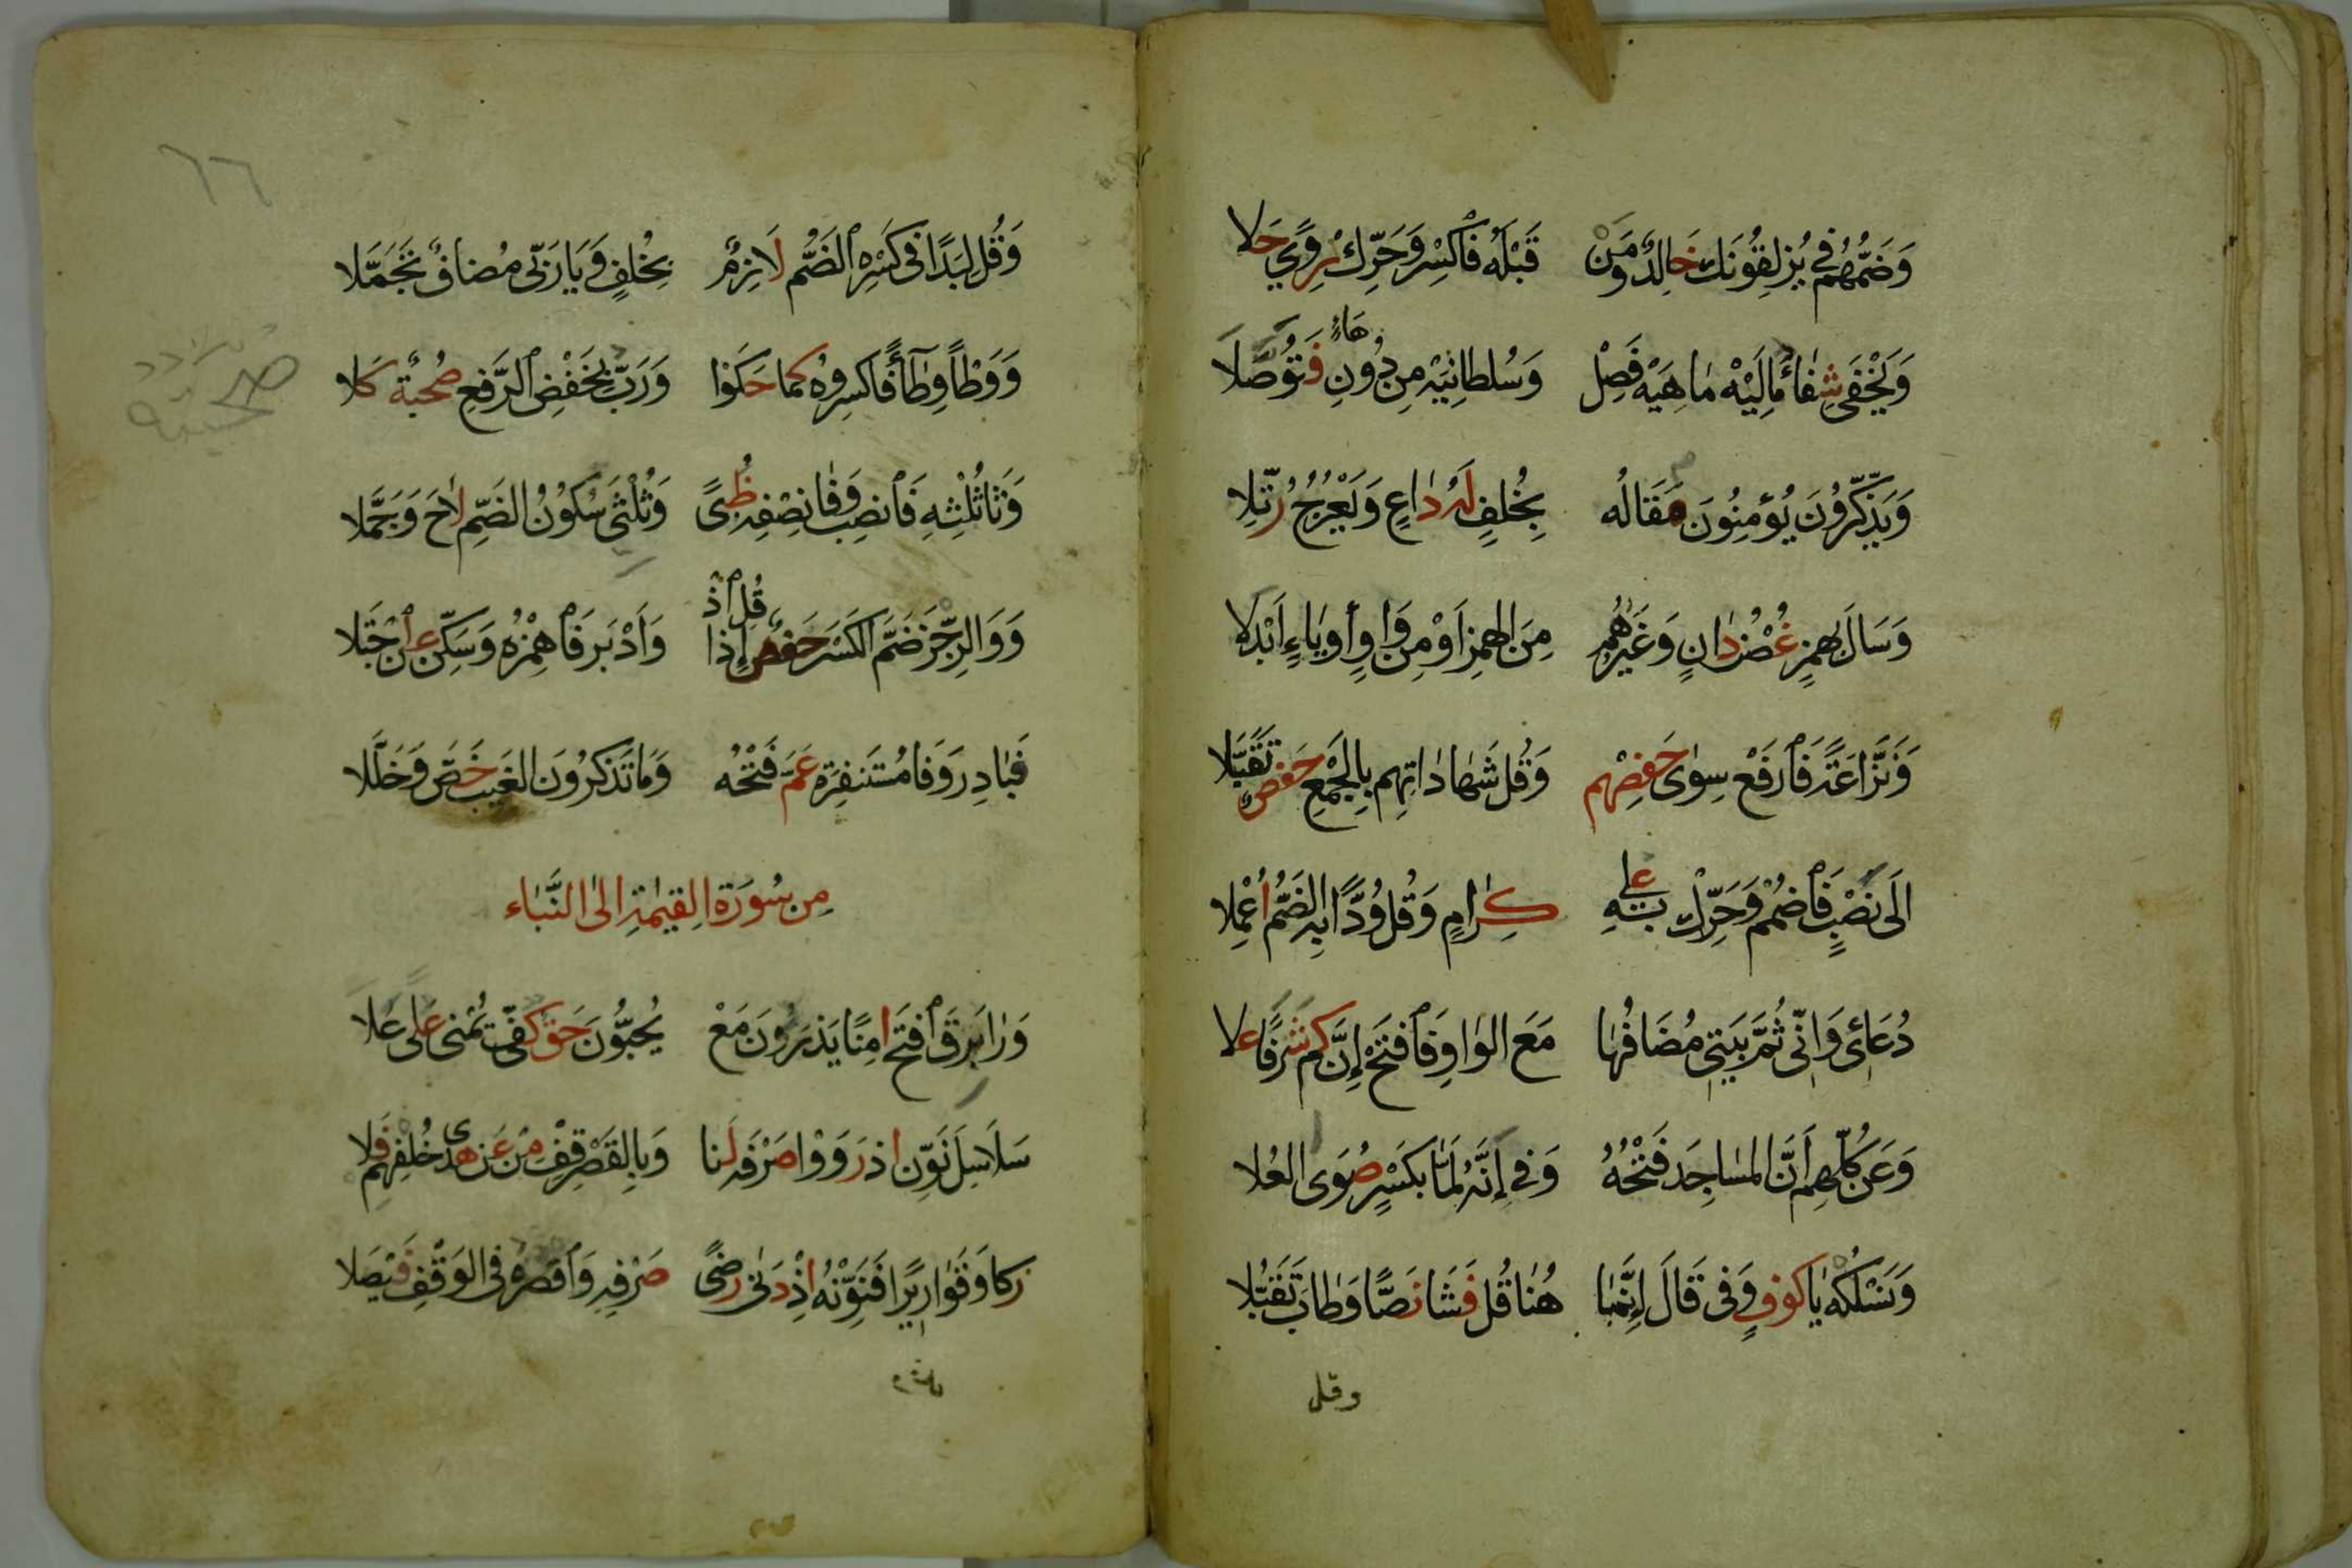 وَضَمُّهُمُ فِي يُزْلِقُونَكَ خَالِدٌ وَمَنْ قَبْلَهُ فَاكْسِرْ وَحَرِّكْ رِوًى حَلَا
وَيَخْفَى شِفَاءً مَالِيَهْ مَاهِيَهْ فَصِلْ وَسُلْطَانِيَهْ مِنْ دُونِ هَاءٍ فَتُوصَلَا
وَيَذَّكَّرُونَ يُؤْمِنُونَ مَقَالُه بِخُلْفٍ لَهُ دَاعٍ وَيَعْرُجُ رُتِّلَا
وَسَالَ بِهَمْزٍ غُصْنُ دَانٍ وَغَيْرُهُمْ مِنَ الهَمْزِ أَوْ مِنْ وَاوٍ أَو يَاءٍ اَبْدَلَا
وَنَزَّاعَةً فَارْفَعْ سِوَى حَفْصِهِمْ وَقُلْ شَهَادَاتِهِمْ بِالْجَمْعِ حَفْصٌ تَقَبَّلَا
اِلَى نُصُبٍ فَاضْمُمْ وَحَرِّكْ بِهِ عُلَى كِرَامٍ وَقُلْ وُدًّا بِهِ الضَّمُّ اُعْمِلَا
دُعَائِى وَاِنِّى ثُمَّ بَيْتِى مُضَافُهَا مَعَ الوَاوِ فَافْتَحْ إِنَّ كَمْ شَرَفًا عَلَا
وَعَنْ كُلِّهِمْ أَنَّ المَسَاجِدَ فَتْحُهُ وَفِي إِنَّهُ لَمَّا بِكَسْرٍ صُوَى العُلَا
وَنَسْلُكْهُ يَا كُوفٍ وَفِى قَالَ إِنَّمَا هُنَا قُلْ فَشَا نَصًّا وَطَابَ تَقَبُّلَا
وقل
٦٦
وَقُلْ لِبَدًا فِى كَسْرِهِ الضَّمُّ لَازِمٌ بِخُلْفٍ وَيَا رَبِّى مُضَافٌ تَجَمَّلَا
وَوَطْأً وِطَاءً فَاكْسِرُوهُ كَمَا حَكَوْا وَرَبُّ بِخَفْضِ الرَّفْعِ صُحْبَةٌ كَلَا
صحبته
وَثَا ثُلْثِهِ فَانْصِبْ وَفَا نِصْفِهِ ظُبًى وَثُلْثَىْ سُكُونُ الضَّمِّ لَاحَ وَجَمَّلَا
وَوَالرِّجْزَ ضَمَّ الكَسْرَ حَفْصٌ إِذَا قُلِ اذْ وَاَدْبَرَ فَاهْمِزْهُ وَسَكِّنْ عَنِ اجْتِلَا
فَبَادِرْ وَفَا مُسْتَنْفِرَه عَمَّ فَتْحُه وَمَا تَذْكُرُونَ الغَيْبَ خُصَّ وَخُلِّلَا
مِنْ سُورَةِ القِيمَةِ اِلَى النَّبَاءِ
وَرَا بَرَقَ افْتَحْ اٰمِنًا يَذَرُونَ مَعْ يُحِبُّونَ حَقٌّ كَفَّ يُمْنَى عَلَى عَلَا
سَلَاسِلَ نَوِّنْ اِذْ رَوَوْا صَرْفَهُ لَنَا وَبِالقَصْرِ قِفْ مِنْ عَنْ هُدًى خُلْفِهِمْ فَلَا
زَكَا وَقَوَارِيرًا فَنَوِّنْهُ اِذْ دَنَى رِضًى صَرْفِهِ وَاقْصُرْهُ فِى الوَقْفِ فَيْصَلَا